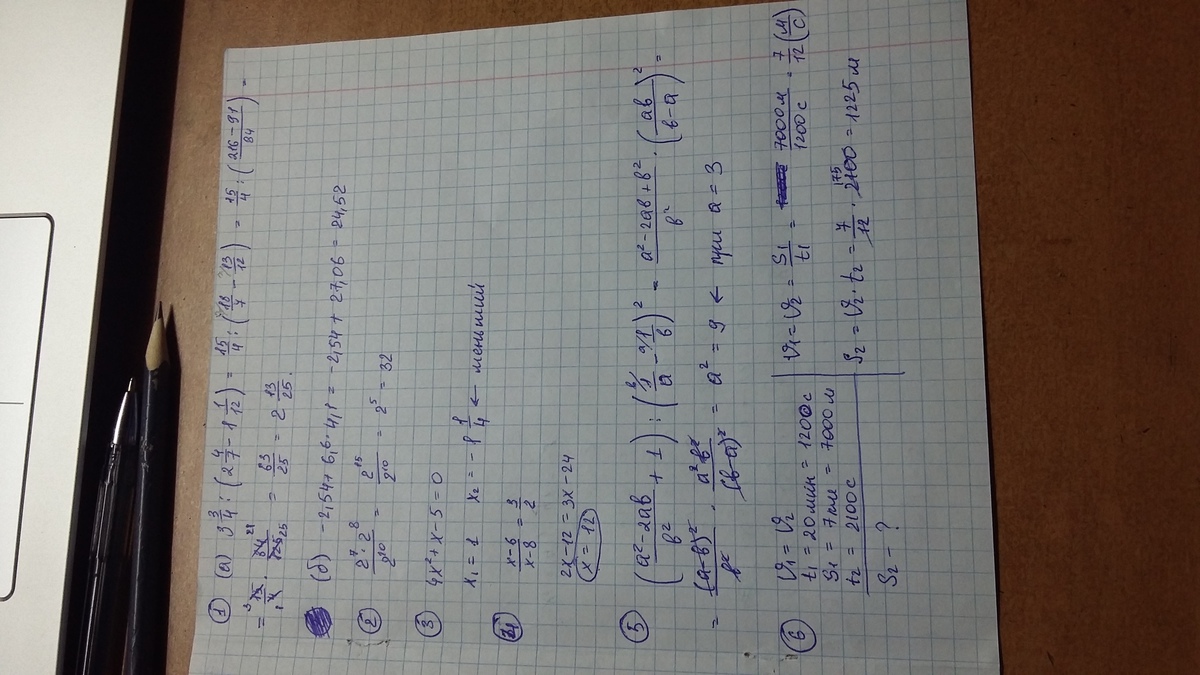 ① (а) 3 3/4 : (2 4/7 − 1 1/12) = 15/4 : (18/7 − 13/12) = 15/4 : ((216 − 91)/84) =
= 15/4 · 84/125 = 63/25 = 2 13/25.
(б) −2,54 + 6,6 · 4,1 = −2,54 + 27,06 = 24,52
② (2⁷ · 2⁸)/2¹⁰ = 2¹⁵/2¹⁰ = 2⁵ = 32
③ 4x² + x − 5 = 0
x₁ = 1 x₂ = −1 1/4 ← меньший
④ (x − 6)/(x − 8) = 3/2
2x − 12 = 3x − 24
x = 12
⑤ ((a² − 2ab)/b² + 1) : (1/a − 1/b)² = (a² − 2ab + b²)/b² · (ab/(b − a))² =
= (a − b)²/b² · a²b²/(b − a)² = a² = 9 ← при a = 3
⑥ V₁ = V₂
t₁ = 20 мин = 1200 с
S₁ = 7 км = 7000 м
t₂ = 2100 с
S₂ − ?
V₁ = V₂ = S₁/t₁ = 7000 м/1200 с = 7/12 (м/с)
S₂ = V₂ · t₂ = 7/12 · 2100 = 1225 м